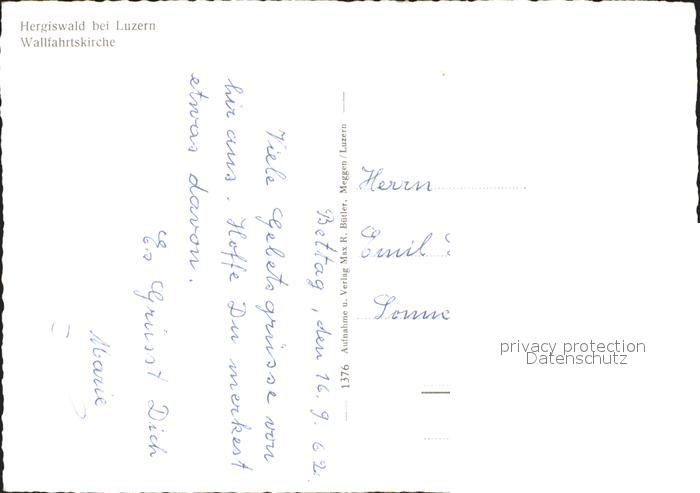 Hergiswald bei Luzern
Wallfahrtskirche
Bettag, den 16. 9. 62.
Viele Gebetsgrüsse von
hir aus. Hoffe Du merkest
etwas davon.
Es Grüsst Dich
Marie
1376 Aufnahme u. Verlag Max R. Bütler, Meggen/Luzern
Herrn
Emil
Sonne
privacy protection
Datenschutz